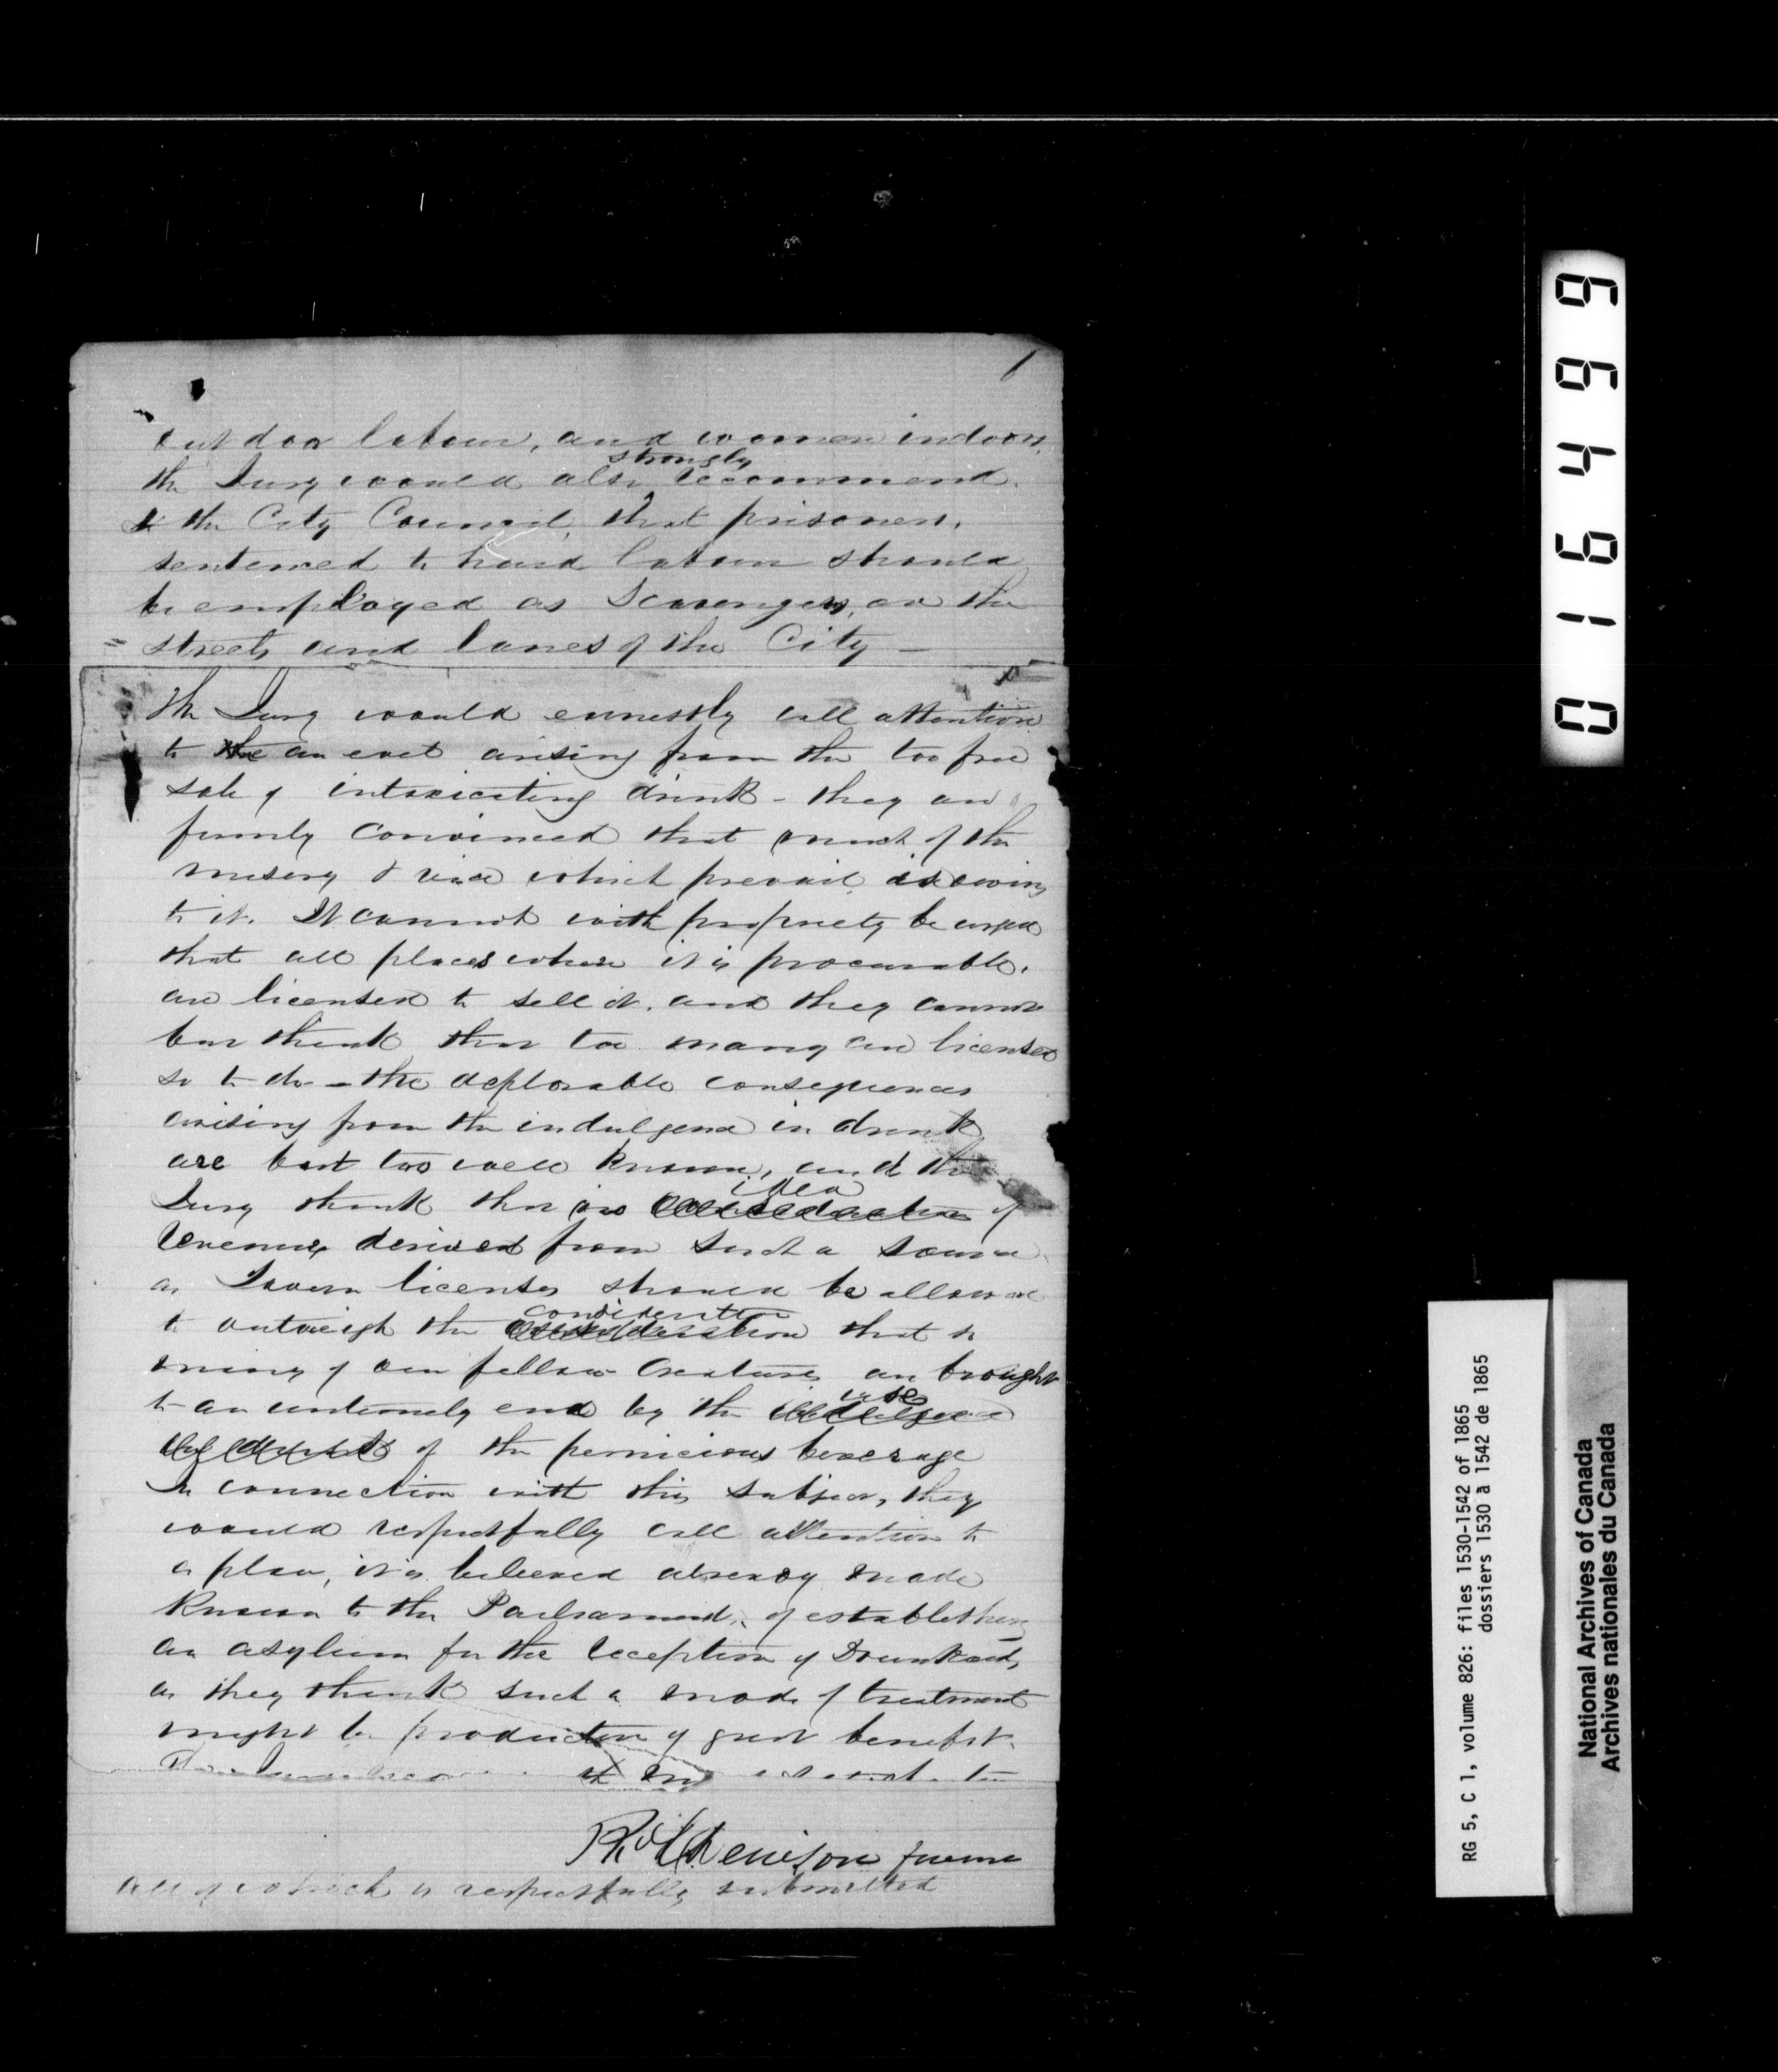 out door labour, and women indoors,
the Jury would also strongly recommend
to the City Council, that prisoners,
sentenced to hard labour should
be employed as Scavengers, on the
streets and lanes of the City —
The Jury would earnestly call attention
to the an evil arising from the too free
sale of intoxicating drink - they are
firmly convinced that much of the
misery & vice which prevail is owing
to it. It cannot with propriety be urged
that all places where it is procurable,
are licensed to sell it. and they cannot
but think that too many are licensed
so to do — the deplorable consequences
arising from the indulgence in drink
are but too well known, and the
Jury think that no idea of
revenue derived from such a source
as Tavern licenses should be allowed
to outweigh the consideration that so
many of our fellow Creatures are brought
to an untimely end by the use
of the pernicious beverage
In connection with this subject, they
would respectfully call attention to
a plan, it is believed already made
known to the Parliament, of establishing
an asylum for the reception of Drunkards,
as they think such a mode of treatment
might be productive of great benefit.
Denison
all of which is respectfully submitted
019499
RG 5, C 1, volume 826: files 1530-1542 of 1865
dossiers 1530 à 1542 de 1865
National Archives of Canada
Archives nationales du Canada